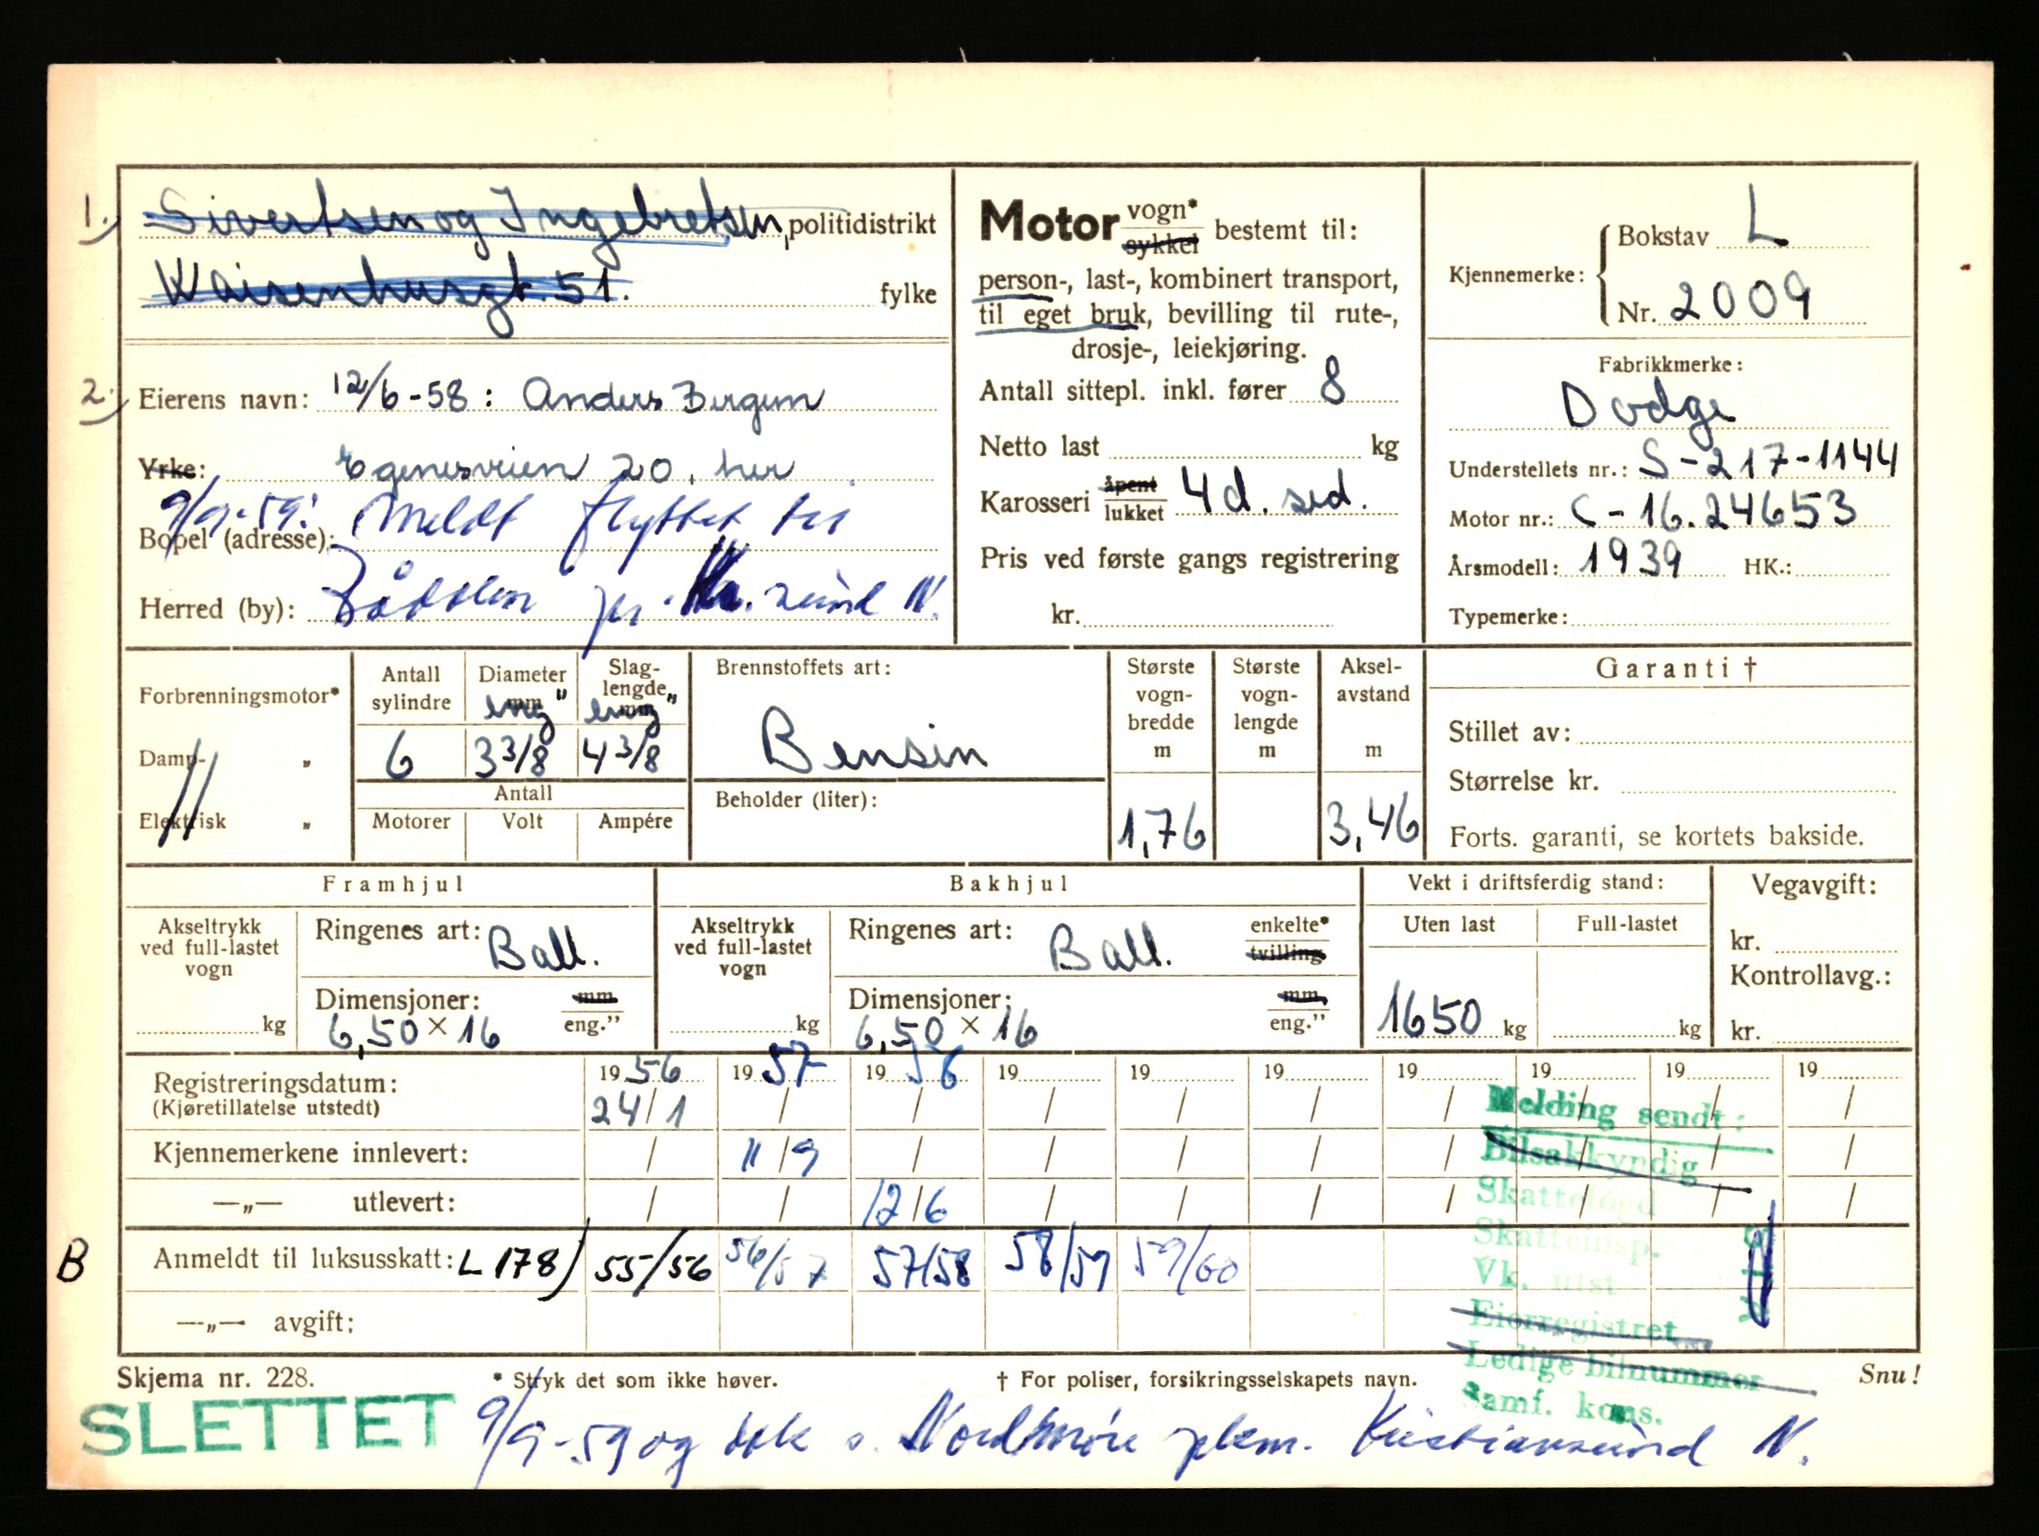 1. Sivertsen og Ingebretsen, politidistrikt
Waisenhusgt. 51. fylke
2. Eierens navn: 12/6-58: Anders Bergem
Yrke: Egenesveien 20, her
9/9-59: Meldt flyttet til
Bopel (adresse):
Herred (by): Bådalen pr. Kr.sund N.
Motor vogn* sykkel bestemt til:
person-, last-, kombinert transport,
til eget bruk, bevilling til rute-,
drosje-, leiekjøring.
Antall sittepl. inkl. fører 8
Netto last kg
Karosseri åpent lukket 4d. sed.
Pris ved første gangs registrering
kr.
Kjennemerke: Bokstav L
Nr. 2009
Fabrikkmerke:
Dodge
Understellets nr.: S-217-1144
Motor nr.: C-16.24653
Årsmodell: 1939 HK.:
Typemerke:
Forbrenningsmotor*
Damp- "
Elektrisk "
Antall sylindre
6
Diameter mm eng"
3 3/8
Slag-lengde mm eng"
4 3/8
Antall
Motorer Volt Ampére
Brennstoffets art:
Bensin
Beholder (liter):
Største vogn-bredde m
1,76
Største vogn-lengde m
Aksel-avstand m
3,46
Garanti †
Stillet av:
Størrelse kr.
Forts. garanti, se kortets bakside.
Framhjul
Akseltrykk ved full-lastet vogn
kg
Ringenes art: Ball.
Dimensjoner: mm
6,50 × 16 eng."
Bakhjul
Akseltrykk ved full-lastet vogn
kg
Ringenes art: Ball. enkelte* tvilling
Dimensjoner: mm
6,50 × 16 eng."
Vekt i driftsferdig stand:
Uten last Full-lastet
1650 kg kg
Vegavgift:
kr.
Kontrollavg.:
kr.
Registreringsdatum: 1956 1957 1958 19 19 19 19 19 19 19
(Kjøretillatelse utstedt) 24/1 / / / / / / / / /
Kjennemerkene innlevert: / 11/9 / / / / / / / /
—„— utlevert: / / 12/6 / / / / / / /
B Anmeldt til luksusskatt: L 178) 55/56 56/57 57/58 58/59 59/60
—„— avgift:
Melding sendt:
Bilsakkyndig
Skattefogd
Skatteinsp.
Vk. utst
Eierregistret
Ledige bilnummer
Samf. kons.
Skjema nr. 228. * Stryk det som ikke høver. † For poliser, forsikringsselskapets navn. Snu!
SLETTET 9/9-59 og dok s. Nordmøre pkm. Kristiansund N.